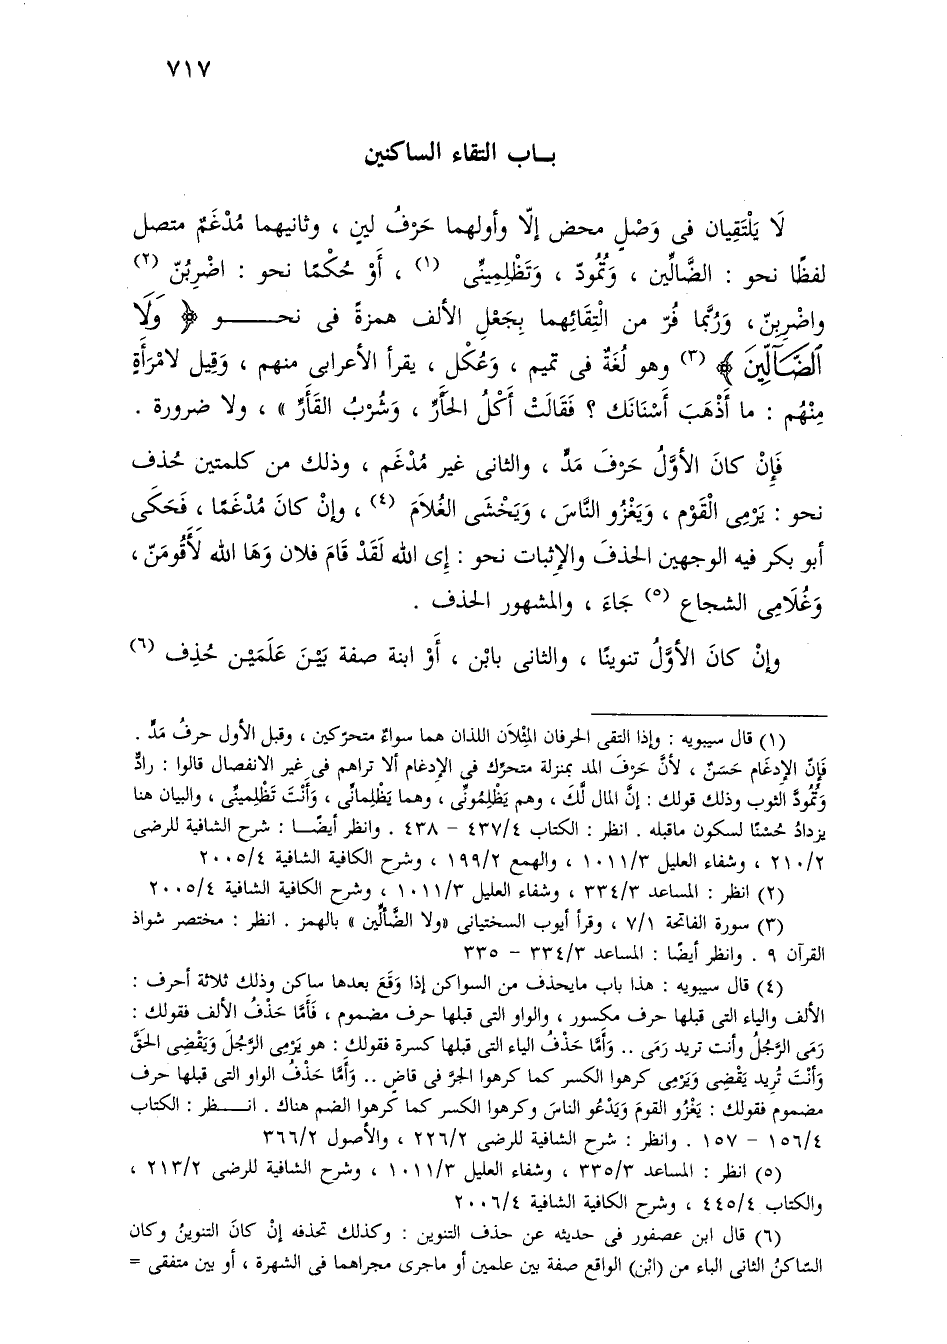 ٧١٧
بـاب التقاء الساكنين
لَا يَلْتَقِيان فى وَصْلٍ محض إلّا وأولهما حَرْفُ لين ، وثانيهما مُدْغَمٌ متصل
لفظًا نحو : الضَّالِّين ، وَتُمُودّ ، وَتَظْلِمِينِّى (١) ، أَوْ حُكْمًا نحو : اضْرِبُنّ (٢)
واضْرِبِنّ ، وَرُبَّما فُرّ من الْتِقَائِهما بِجَعْلِ الألف همزةً فى نحـــو ﴿ وَلَا
ٱلضَّآلِّينَ ﴾ (٣) وهو لُغَةٌ فى تميم ، وَعُكْل ، يقرأ الأعرابى منهم ، وَقِيل لامْرَأَةٍ
مِنْهُم : ما أَذْهَبَ أَسْنَانَك ؟ فَقَالَتْ أَكْلُ الحَأَرِّ ، وَشُرْبُ القَأَرِّ » ، ولا ضرورة .
فَإِنْ كانَ الأوَّلُ حَرْفَ مَدٍّ ، والثانى غير مُدْغَم ، وذلك من كلمتين حُذف
نحو : يَرْمِى الْقَوْم ، وَيَغْزُو النَّاسَ ، وَيَخْشَى الغُلَامَ (٤) ، وإنْ كان مُدْغَمًا ، فَحَكَى
أبو بكر فيه الوجهين الحذفَ والإثبات نحو : إى الله لَقَدْ قَامَ فلان وَهَا الله لَأَقُومَنّ ،
وَغُلَامِى الشجاع (٥) جَاءَ ، والمشهور الحذف .
وإنْ كانَ الأوَّلُ تنوينًا ، والثانى بابْن ، أَوْ ابنة صفة بَيْنَ عَلَمَيْن حُذِف (٦)
(١) قال سيبويه : وإذا التقى الحرفان المِثْلاَن اللذان هما سواءٌ متحرّكين ، وقبل الأول حرفُ مَدٍّ .
فَإِنّ الإدغَام حَسَنٌ ، لأنَّ حَرْفَ المد بمنزلة متحرّك فى الإدغام ألا تراهم فى غير الانفصال قالوا : رادٌّ
وَتُمُودَّ الثوب وذلك قولك : إنَّ المال لَّكَ ، وهم يَظْلِمُونِّى ، وهما يَظْلِمانِّى ، وَأَنْتَ تَظْلِمينِّى ، والبيان هنا
يزدادُ حُسْنًا لسكون ماقبله . انظر : الكتاب ٤٣٧/٤ – ٤٣٨ . وانظر أيضًـا : شرح الشافية للرضى
٢١٠/٢ ، وشفاء العليل ١٠١١/٣ ، والهمع ١٩٩/٢ ، وشرح الكافية الشافية ٢٠٠٥/٤
(٢) انظر : المساعد ٣٣٤/٣ ، وشفاء العليل ١٠١١/٣ ، وشرح الكافية الشافية ٢٠٠٥/٤
(٣) سورة الفاتحة ٧/١ ، وقرأ أيوب السختيانى «ولا الضَّأَلِّين » بالهمز . انظر : مختصر شواذ
القرآن ٩ . وانظر أيضًا : المساعد ٣٣٤/٣ – ٣٣٥
(٤) قال سيبويه : هذا باب مايحذف من السواكن إذا وَقَعَ بعدها ساكن وذلك ثلاثة أحرف :
الألف والياء التى قبلها حرف مكسور ، والواو التى قبلها حرف مضموم ، فَأَمَّا حَذْفُ الألف فقولك :
رَمَى الرَّجُلُ وأنت تريد رَمَى .. وَأَمَّا حَذْفُ الياء التى قبلها كسرة فقولك : هو يَرْمِى الرَّجُلَ وَيَقْضِى الحَقَّ
وَأَنْتَ تُرِيد يَقْضِى وَيَرْمِى كرهوا الكسر كما كرهوا الجرَّ فى قاضٍ .. وَأَمَّا حَذْفُ الواو التى قبلها حرف
مضموم فقولك : يَغْزُو القومَ وَيَدْعُو الناسَ وكرهوا الكسر كما كرهوا الضم هناك . انـــظر : الكتاب
١٥٦/٤ – ١٥٧ . وانظر : شرح الشافية للرضى ٢٢٦/٢ ، والأصول ٣٦٦/٢
(٥) انظر : المساعد ٣٣٥/٣ ، وشفاء العليل ١٠١١/٣ ، وشرح الشافية للرضى ٢١٣/٢ ،
والكتاب ٤٤٥/٤ ، وشرح الكافية الشافية ٢٠٠٦/٤
(٦) قال ابن عصفور فى حديثه عن حذف التنوين : وكذلك تحذفه إنْ كانَ التنوينُ وكان
السّاكنُ الثانى الباء من (ابْن) الواقع صفة بين علمين أو ماجرى مجراهما فى الشهرة ، أو بين متفقى =